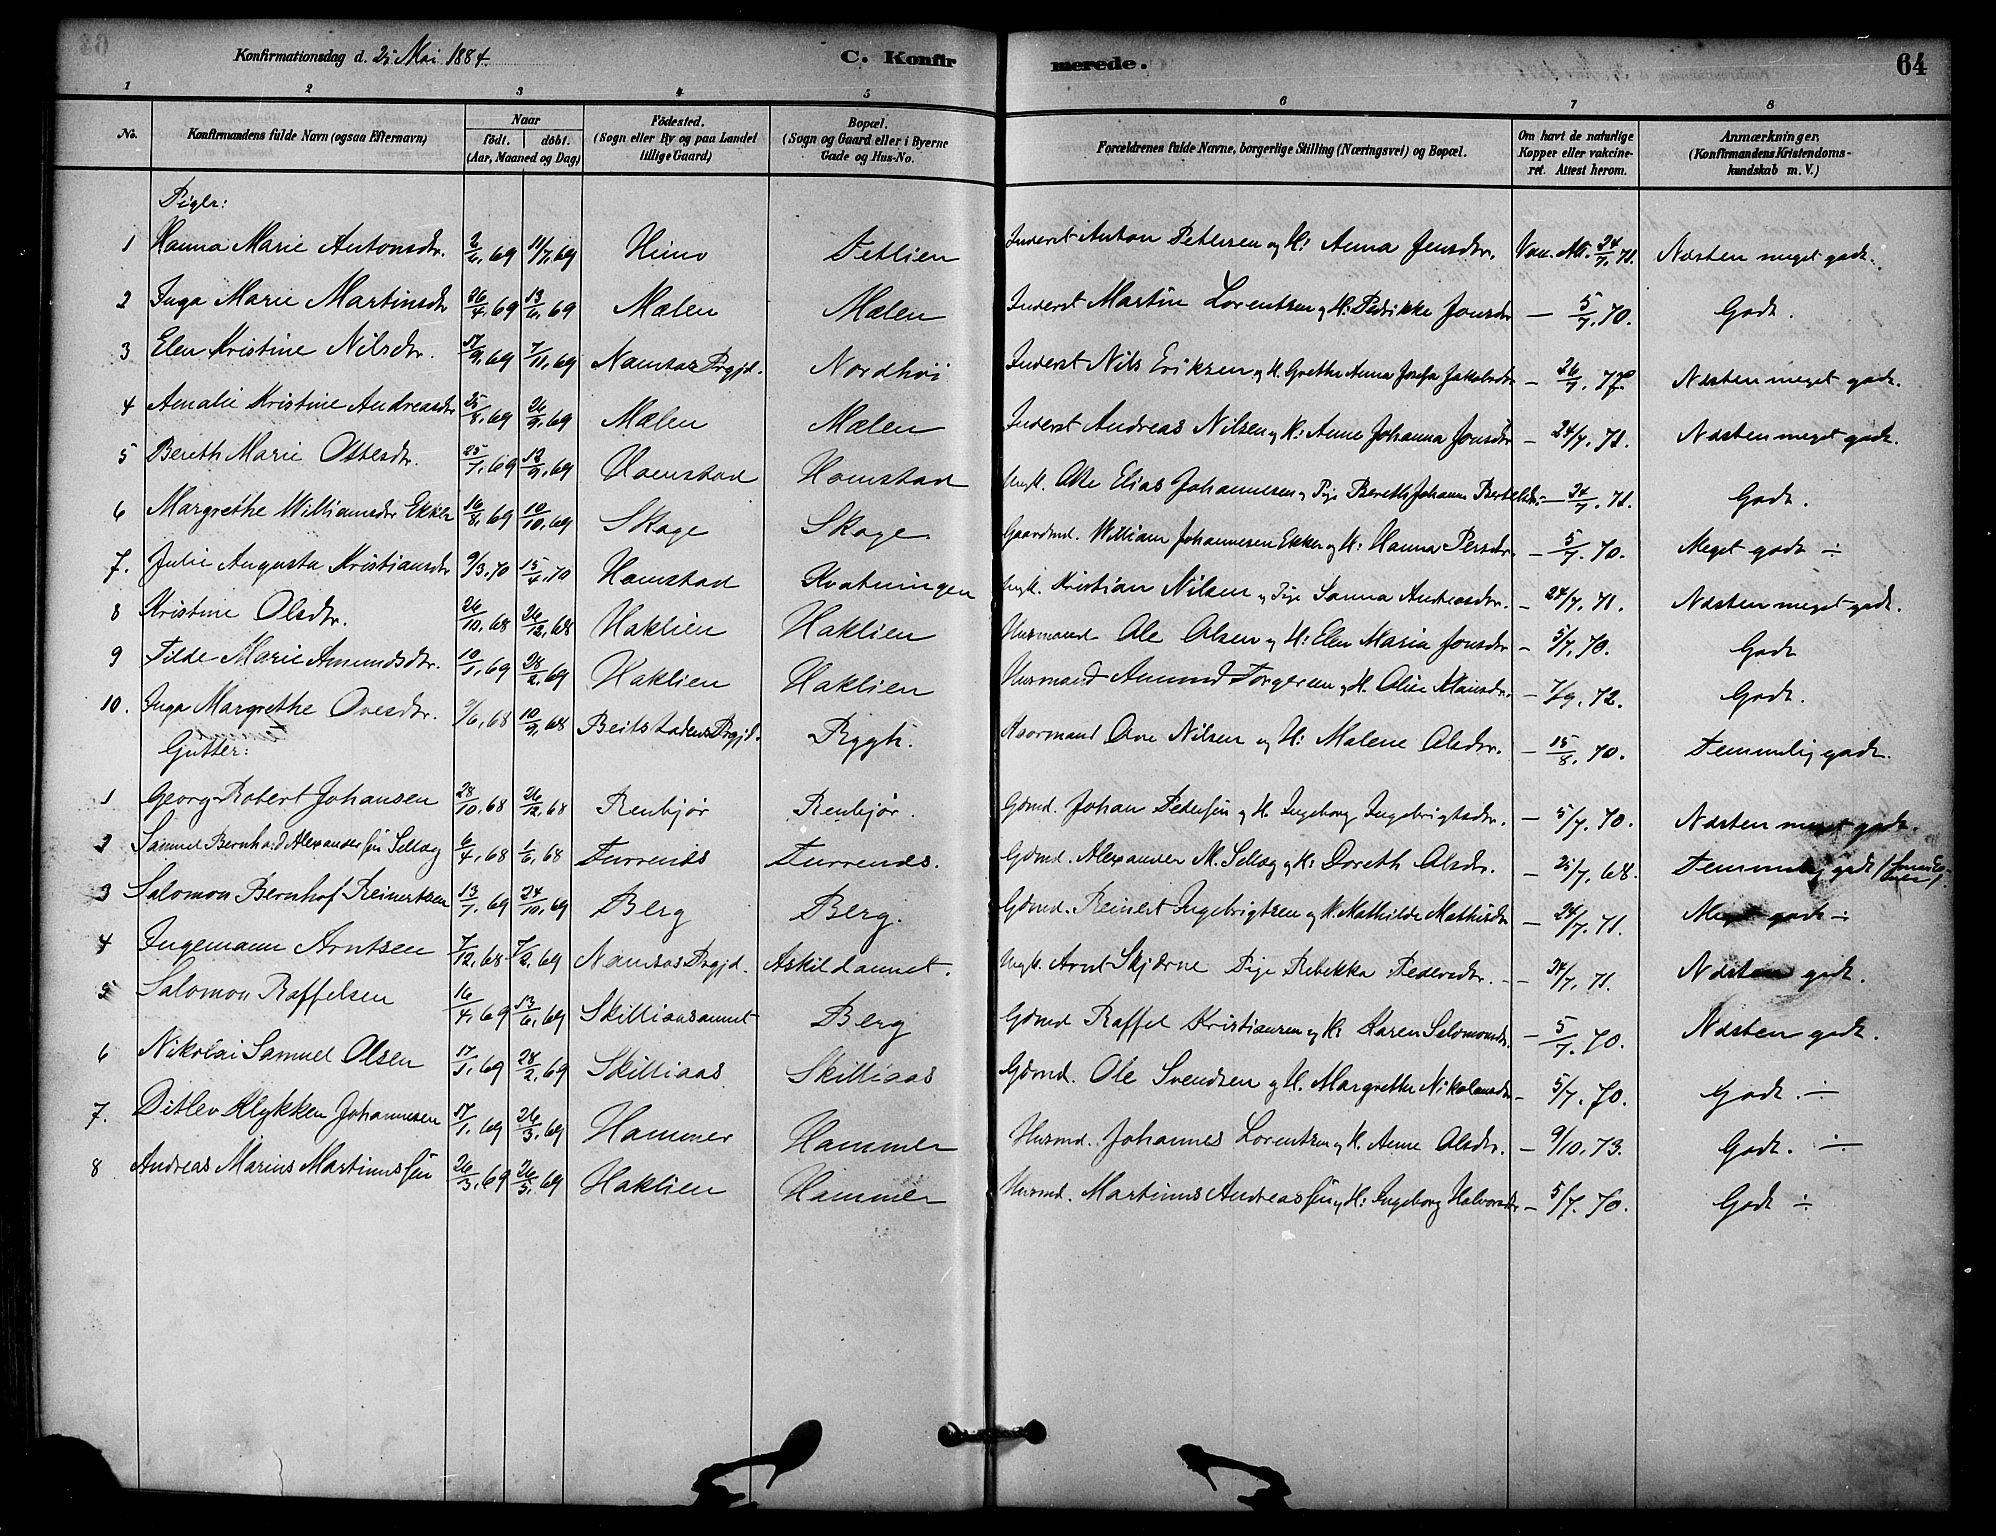 Konfirmationsdag d. 25 Mai 1884. C. Konfir merede. 64
1 2 3 4 5 6 7 8
No. Konfirmandens fulde Navn (ogsaa Efternavn) Naar födt. döbt. (Aar, Maaned og Dag) Födested. (Sogn eller By og paa Landet tillige Gaard) Bopæl. (Sogn og Gaard eller i Byerne Gade og Hus-No. Forældrenes fulde Navne, borgerlige Stilling (Næringsvei) og Bopæl. Om havt de naturlige Kopper eller vakcineret. Attest herom. Anmærkninger, (Konfirmandens Kristendomskundskab m. V.)
Piger:
1 Hanna Marie Antonsdtr. 2/6, 69 11/7, 69 Himo Fetlien Inderst Anton Petersen og H: Anna Jensdtr. Vac. Att. 24/7, 71. Næsten meget godt.
2 Inga Marie Martinsdtr 26/4, 69 13/6, 69 Mælen Mælen Inderst Martin Lorentsen og H: Fredrikke Jonsdtr — 5/7, 70. Godt.
3 Elen Kristine Nilsdtr. 17/9, 69 7/11, 69 Namsos Prgjd. Nordhøi Inderst Nils Eriksen og H. Grethe Anna Josefa Jakobsdtr — 26/7, 77 Næsten meget godt.
4 Amalie Kristine Andreasdtr 25/8, 69 26/9, 69 Mælen Mælen Inderst Andreas Nilsen og H: Anne Johanna Jonsdtr — 24/7, 71. Næsten meget godt.
5 Bereth Marie Ottesdtr. 25/7, 69 12/9, 69 Homstad Homstad Ungk. Otte Elias Johannesen og Pige Bereth Johanna Bertelsdtr. — 24/7, 71. Godt.
6 Margrethe Williamsdtr Ekker 16/8, 69 10/10, 69 Skage Skage. Gaardmd. William Johannesen Ekker og H: Hanna Persdtr. — 5/7, 70. Meget godt ÷
7. Julie Augusta Kristiansdtr 9/3, 70 15/4, 70 Homstad Kvatningen Ungk. Kristian Nilsen og Pige Sanna Andreasdtr. — 24/7, 71. Næsten meget godt.
8 Kristine Olsdtr. 26/10, 68 26/12, 68 Haklien Haklien Husmand Ole Olsen og H: Elen Maria Jonsdtr — 5/7, 70. Godt
9 Tilde Marie Amundsdtr. 10/1, 69 28/2, 69 Haklien Haklien Husmand Amund Torgersen og H. Oline Mansdtr. — 7/9, 72. Godt.
10. Inga Margrethe Ovesdtr. 7/6, 68 10/9, 68 Beitstadens Prgjd. Rygh. Ove Nilsen og H: Malene Olsdtr. — 15/8, 70. Temmelig godt.
Gutter:
1 Georg Robert Johansen 28/10, 68 26/12, 68 Renbjør Renbjør. Gdmd. Johan Pedersen og H. Ingeborg Ingebrigtsdtr. — 5/7, 70. Næsten meget godt.
2 Samuel Bernhard Alexandersen Sellæg 6/4, 68 1/6, 68 Furrenes Furrenes. Gdmd. Alexander M. Sellæg og H: Doreth Olsdtr. — 25/7, 68. Temmelig godt
3 Salomon Bernhof Reinertsen 13/7, 69 24/10, 69 Berg Berg. Gdmd. Reinert Ingebrigtsen og H. Mathilde Mathisdtr — 24/7, 71. Meget godt ÷
4 Ingemann Arntsen 7/12, 68 7/2, 69 Namsos Prgjd. Askildamnet. Ungk. Arnt Skjærne Pige Rebekka Pedersdtr. — 24/7, 71. Næsten godt.
5 Salomon Raffelsen 16/4, 69 13/6, 69 Skilliaasamnet Berg Gdmd Raffel Kristiansen og H: Karen Salomonsdtr — 5/7. 70. Næsten godt.
6 Nikolai Samuel Olsen 17/1, 69 28/2, 69 Skilliaas Skilliaas Gdmd. Ole Svendsen og H. Margrethe Nikolausdtr — 5/7. 70. Godt. ÷
7. Ditlev Klykken Johannesen 17/1, 69 26/3, 69 Hammer Hammer Husmd. Johannes Lorentsen og H. Anne Olsdtr. — 9/10, 73. Godt. ÷
8 Andreas Marius Martinussen 26/3, 69 26/5, 69 Haklien Hammer Husmd. Martinus Andreassen og H: Ingeborg Halvorsdtr — 5/7. 70. Godt ÷